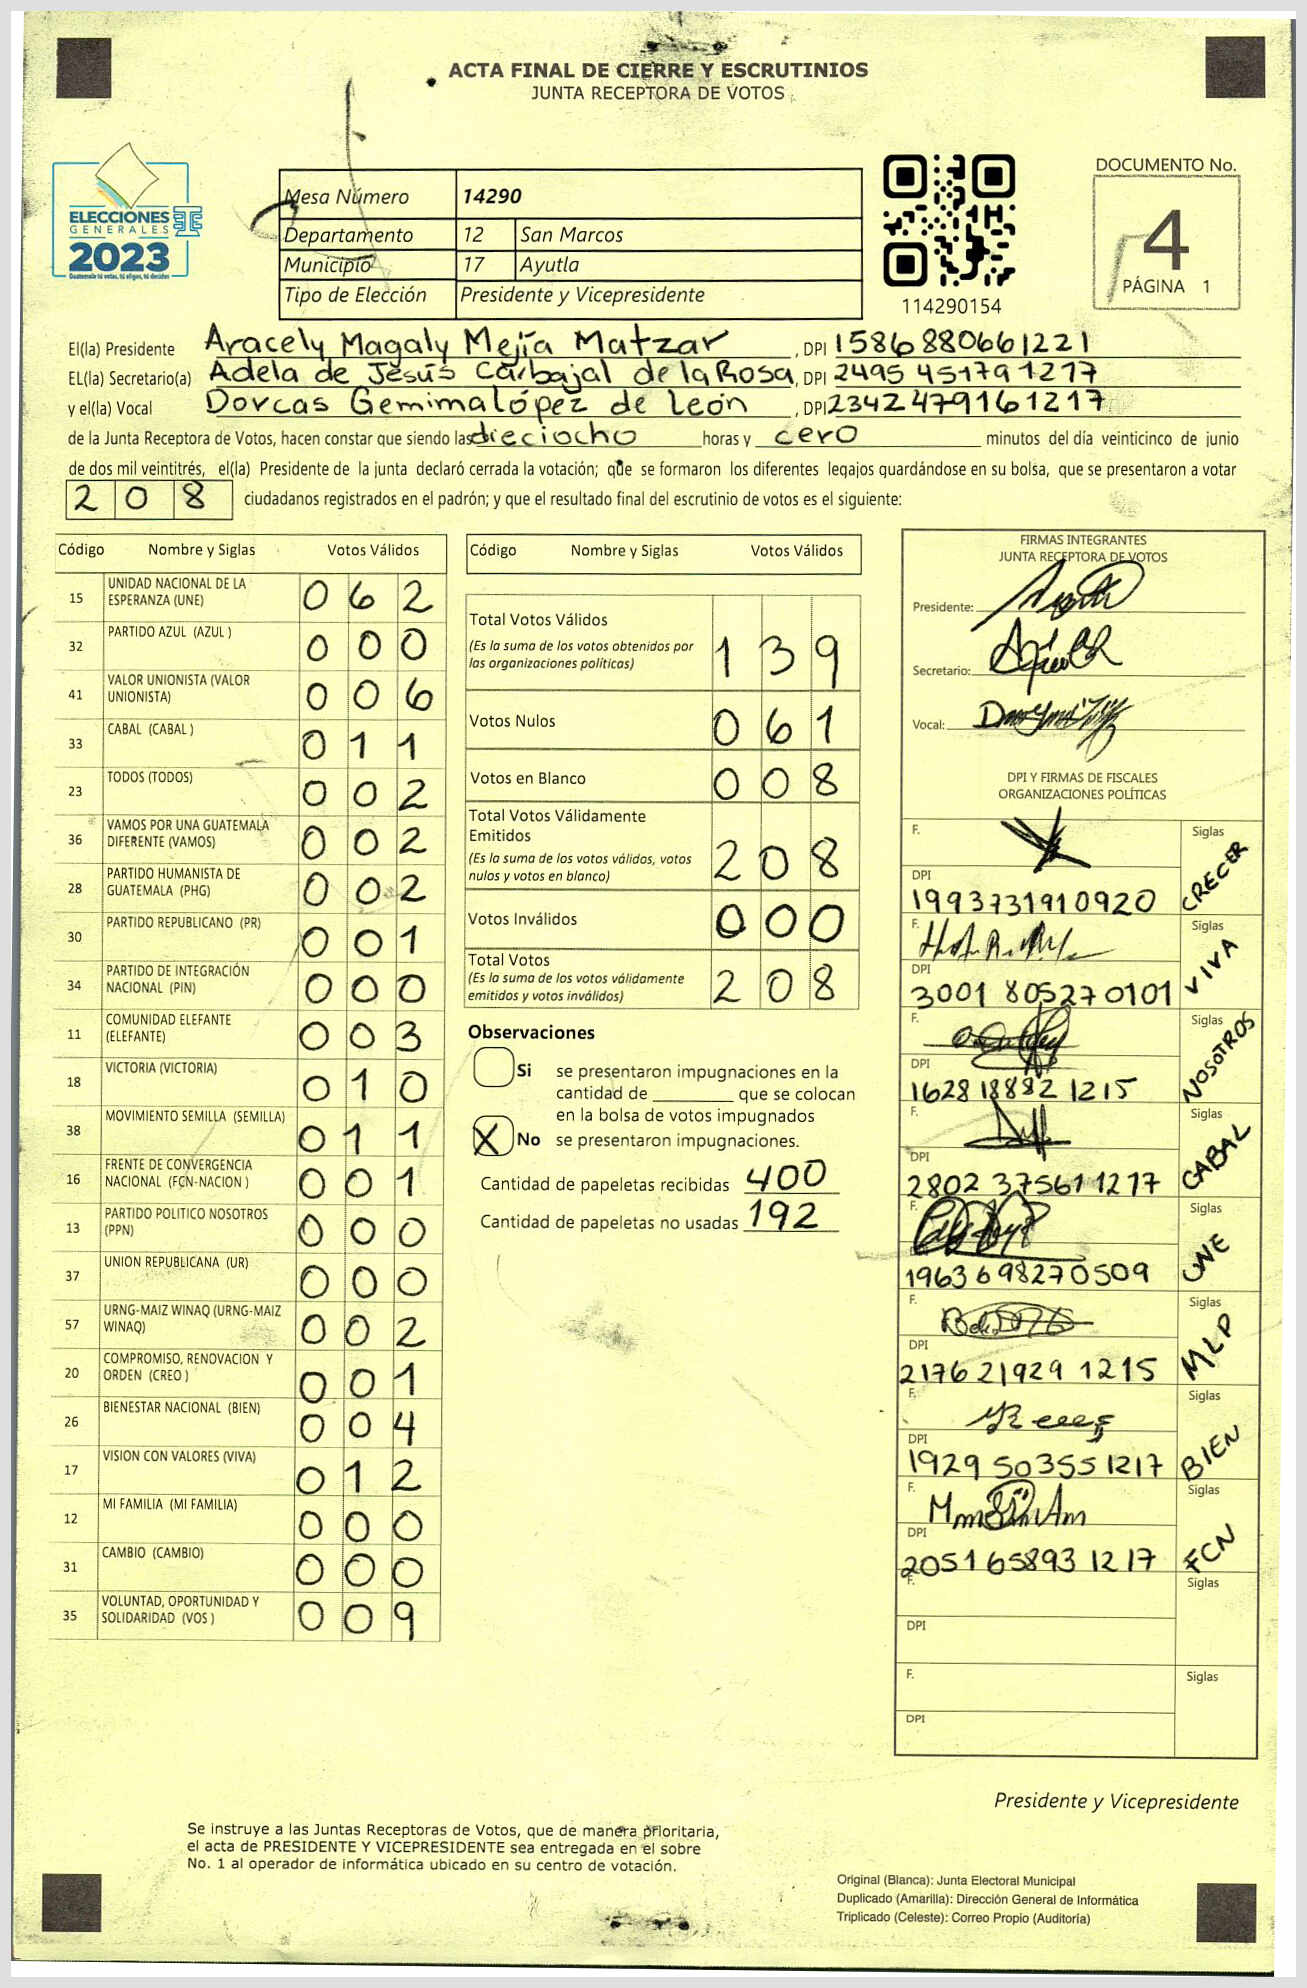 ACTA FINAL DE CIERRE Y ESCRUTINIOS
JUNTA RECEPTORA DE VOTOS
ELECCIONES
GENERALES
2023
Guatemala tú votas, tú eliges, tú decides
Mesa Número 14290
Departamento 12 San Marcos
Municipio 17 Ayutla
Tipo de Elección Presidente y Vicepresidente
114290154
DOCUMENTO No.
4
PÁGINA 1
El(la) Presidente Aracely Magaly Mejía Matzar, DPI 1586880661221
EL(la) Secretario(a) Adela de Jesús Carbajal de la Rosa, DPI 2495 45179 1217
y el(la) Vocal Dorcas Gemima López de León, DPI 2342479161217
de la Junta Receptora de Votos, hacen constar que siendo las dieciocho horas y cero minutos del día veinticinco de junio
de dos mil veintitrés, el(la) Presidente de la junta declaró cerrada la votación; que se formaron los diferentes legajos guardándose en su bolsa, que se presentaron a votar
208 ciudadanos registrados en el padrón; y que el resultado final del escrutinio de votos es el siguiente:
Código Nombre y Siglas Votos Válidos
15 UNIDAD NACIONAL DE LA ESPERANZA (UNE) 062
32 PARTIDO AZUL (AZUL ) 000
41 VALOR UNIONISTA (VALOR UNIONISTA) 006
33 CABAL (CABAL ) 011
23 TODOS (TODOS) 002
36 VAMOS POR UNA GUATEMALA DIFERENTE (VAMOS) 002
28 PARTIDO HUMANISTA DE GUATEMALA (PHG) 002
30 PARTIDO REPUBLICANO (PR) 001
34 PARTIDO DE INTEGRACIÓN NACIONAL (PIN) 000
11 COMUNIDAD ELEFANTE (ELEFANTE) 003
18 VICTORIA (VICTORIA) 010
38 MOVIMIENTO SEMILLA (SEMILLA) 011
16 FRENTE DE CONVERGENCIA NACIONAL (FCN-NACION ) 001
13 PARTIDO POLITICO NOSOTROS (PPN) 000
37 UNION REPUBLICANA (UR) 000
57 URNG-MAIZ WINAQ (URNG-MAIZ WINAQ) 002
20 COMPROMISO, RENOVACION Y ORDEN (CREO ) 001
26 BIENESTAR NACIONAL (BIEN) 004
17 VISION CON VALORES (VIVA) 012
12 MI FAMILIA (MI FAMILIA) 000
31 CAMBIO (CAMBIO) 000
35 VOLUNTAD, OPORTUNIDAD Y SOLIDARIDAD (VOS ) 009
Código Nombre y Siglas Votos Válidos
Total Votos Válidos 139
(Es la suma de los votos obtenidos por
las organizaciones políticas)
Votos Nulos 061
Votos en Blanco 008
Total Votos Válidamente
Emitidos 208
(Es la suma de los votos válidos, votos
nulos y votos en blanco)
Votos Inválidos 000
Total Votos 208
(Es la suma de los votos válidamente
emitidos y votos inválidos)
Observaciones
Si se presentaron impugnaciones en la
cantidad de ________ que se colocan
en la bolsa de votos impugnados
X No se presentaron impugnaciones.
Cantidad de papeletas recibidas 400
Cantidad de papeletas no usadas 192
FIRMAS INTEGRANTES
JUNTA RECEPTORA DE VOTOS
Presidente:
Secretario:
Vocal:
DPI Y FIRMAS DE FISCALES
ORGANIZACIONES POLÍTICAS
F. Siglas
DPI CRECER
1993731910920
F. Siglas
DPI VIVA
3001 805270101
F. Siglas
DPI NOSOTROS
1628 18882 1215
F. Siglas
DPI CABAL
2802 37561 1217
F. Siglas
UNE
1963698270509
F. Siglas
DPI MLP
2176 21929 1215
F. Siglas
DPI BIEN
1929 50355 1217
F. Siglas
DPI FCN
2051 65893 1217
F. Siglas
DPI
F. Siglas
DPI
Presidente y Vicepresidente
Se instruye a las Juntas Receptoras de Votos, que de manera prioritaria,
el acta de PRESIDENTE Y VICEPRESIDENTE sea entregada en el sobre
No. 1 al operador de informática ubicado en su centro de votación.
Original (Blanca): Junta Electoral Municipal
Duplicado (Amarilla): Dirección General de Informática
Triplicado (Celeste): Correo Propio (Auditoría)